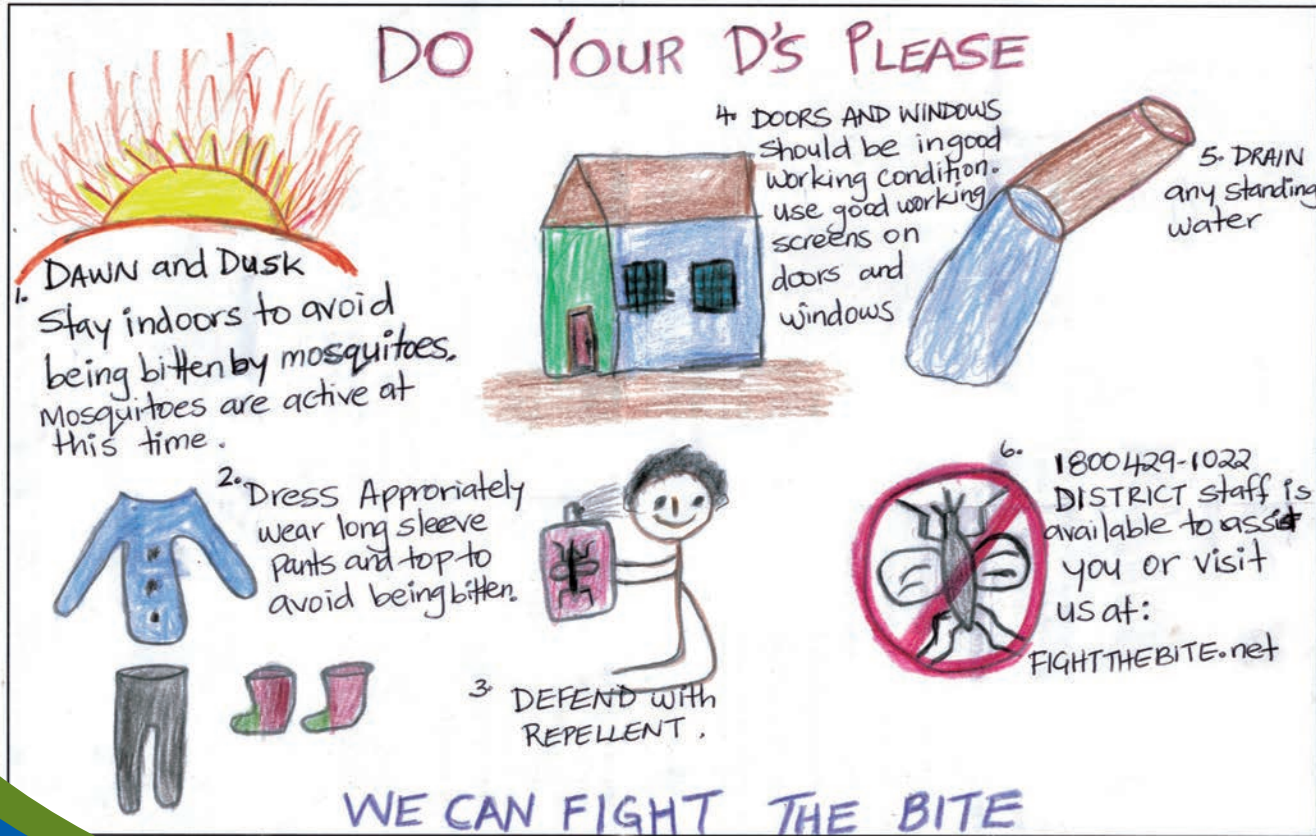 DO YOUR D'S PLEASE
1. DAWN and DUSK
Stay indoors to avoid
being bitten by mosquitoes.
Mosquitoes are active at
this time.
2. Dress Approriately
wear long sleeve
pants and top to
avoid being bitten.
3. DEFEND with
REPELLENT.
4. DOORS AND WINDOWS
should be in good
working condition.
use good working
screens on
doors and
windows
5. DRAIN
any standing
water
6. 1800429-1022
DISTRICT staff is
available to assist
you or visit
us at:
FIGHTTHEBITE.net
WE CAN FIGHT THE BITE